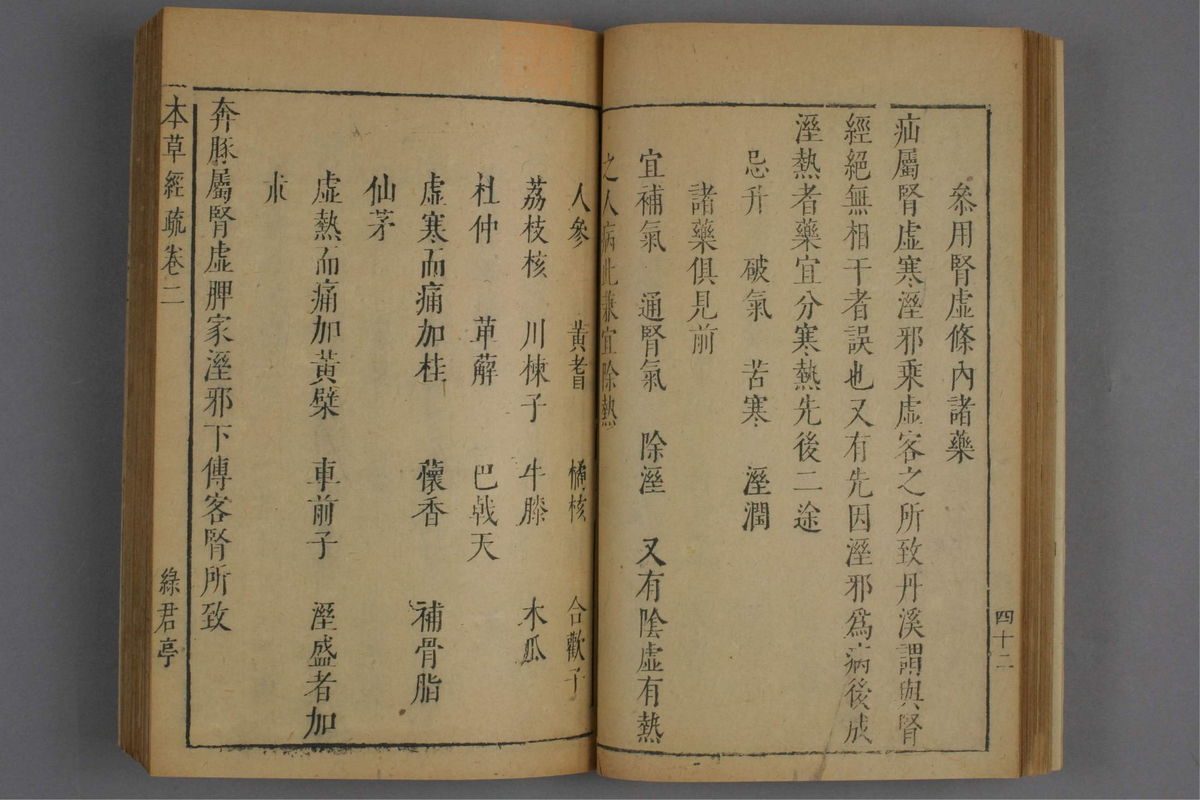 四十二
叅用腎虛條內諸藥
疝屬腎虛寒溼邪乘虛客之所致丹溪謂與腎
經絕無相干者誤也又有先因溼邪爲病後成
溼熱者藥宜分寒熱先後二途
忌升 破氣 苦寒 溼潤
諸藥俱見前
宜補氣 通腎氣 除溼 又有陰虛有熱
之人病此兼宜除熱
人參 黃耆 橘核 合歡子
荔枝核 川楝子 牛膝 木瓜
杜仲 萆薢 巴戟天
虛寒而痛加桂 蘹香 補骨脂
仙茅
虛熱而痛加黃檗 車前子 溼盛者加
朮
奔豚屬腎虛脾家溼邪下傳客腎所致
本草經疏卷二 綠君亭